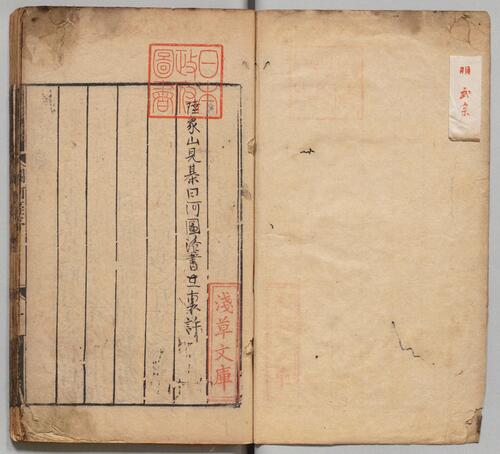 明武宗
日本
政府
圖書
陸象山見棊曰河圖洛書在裏許
淺草文庫